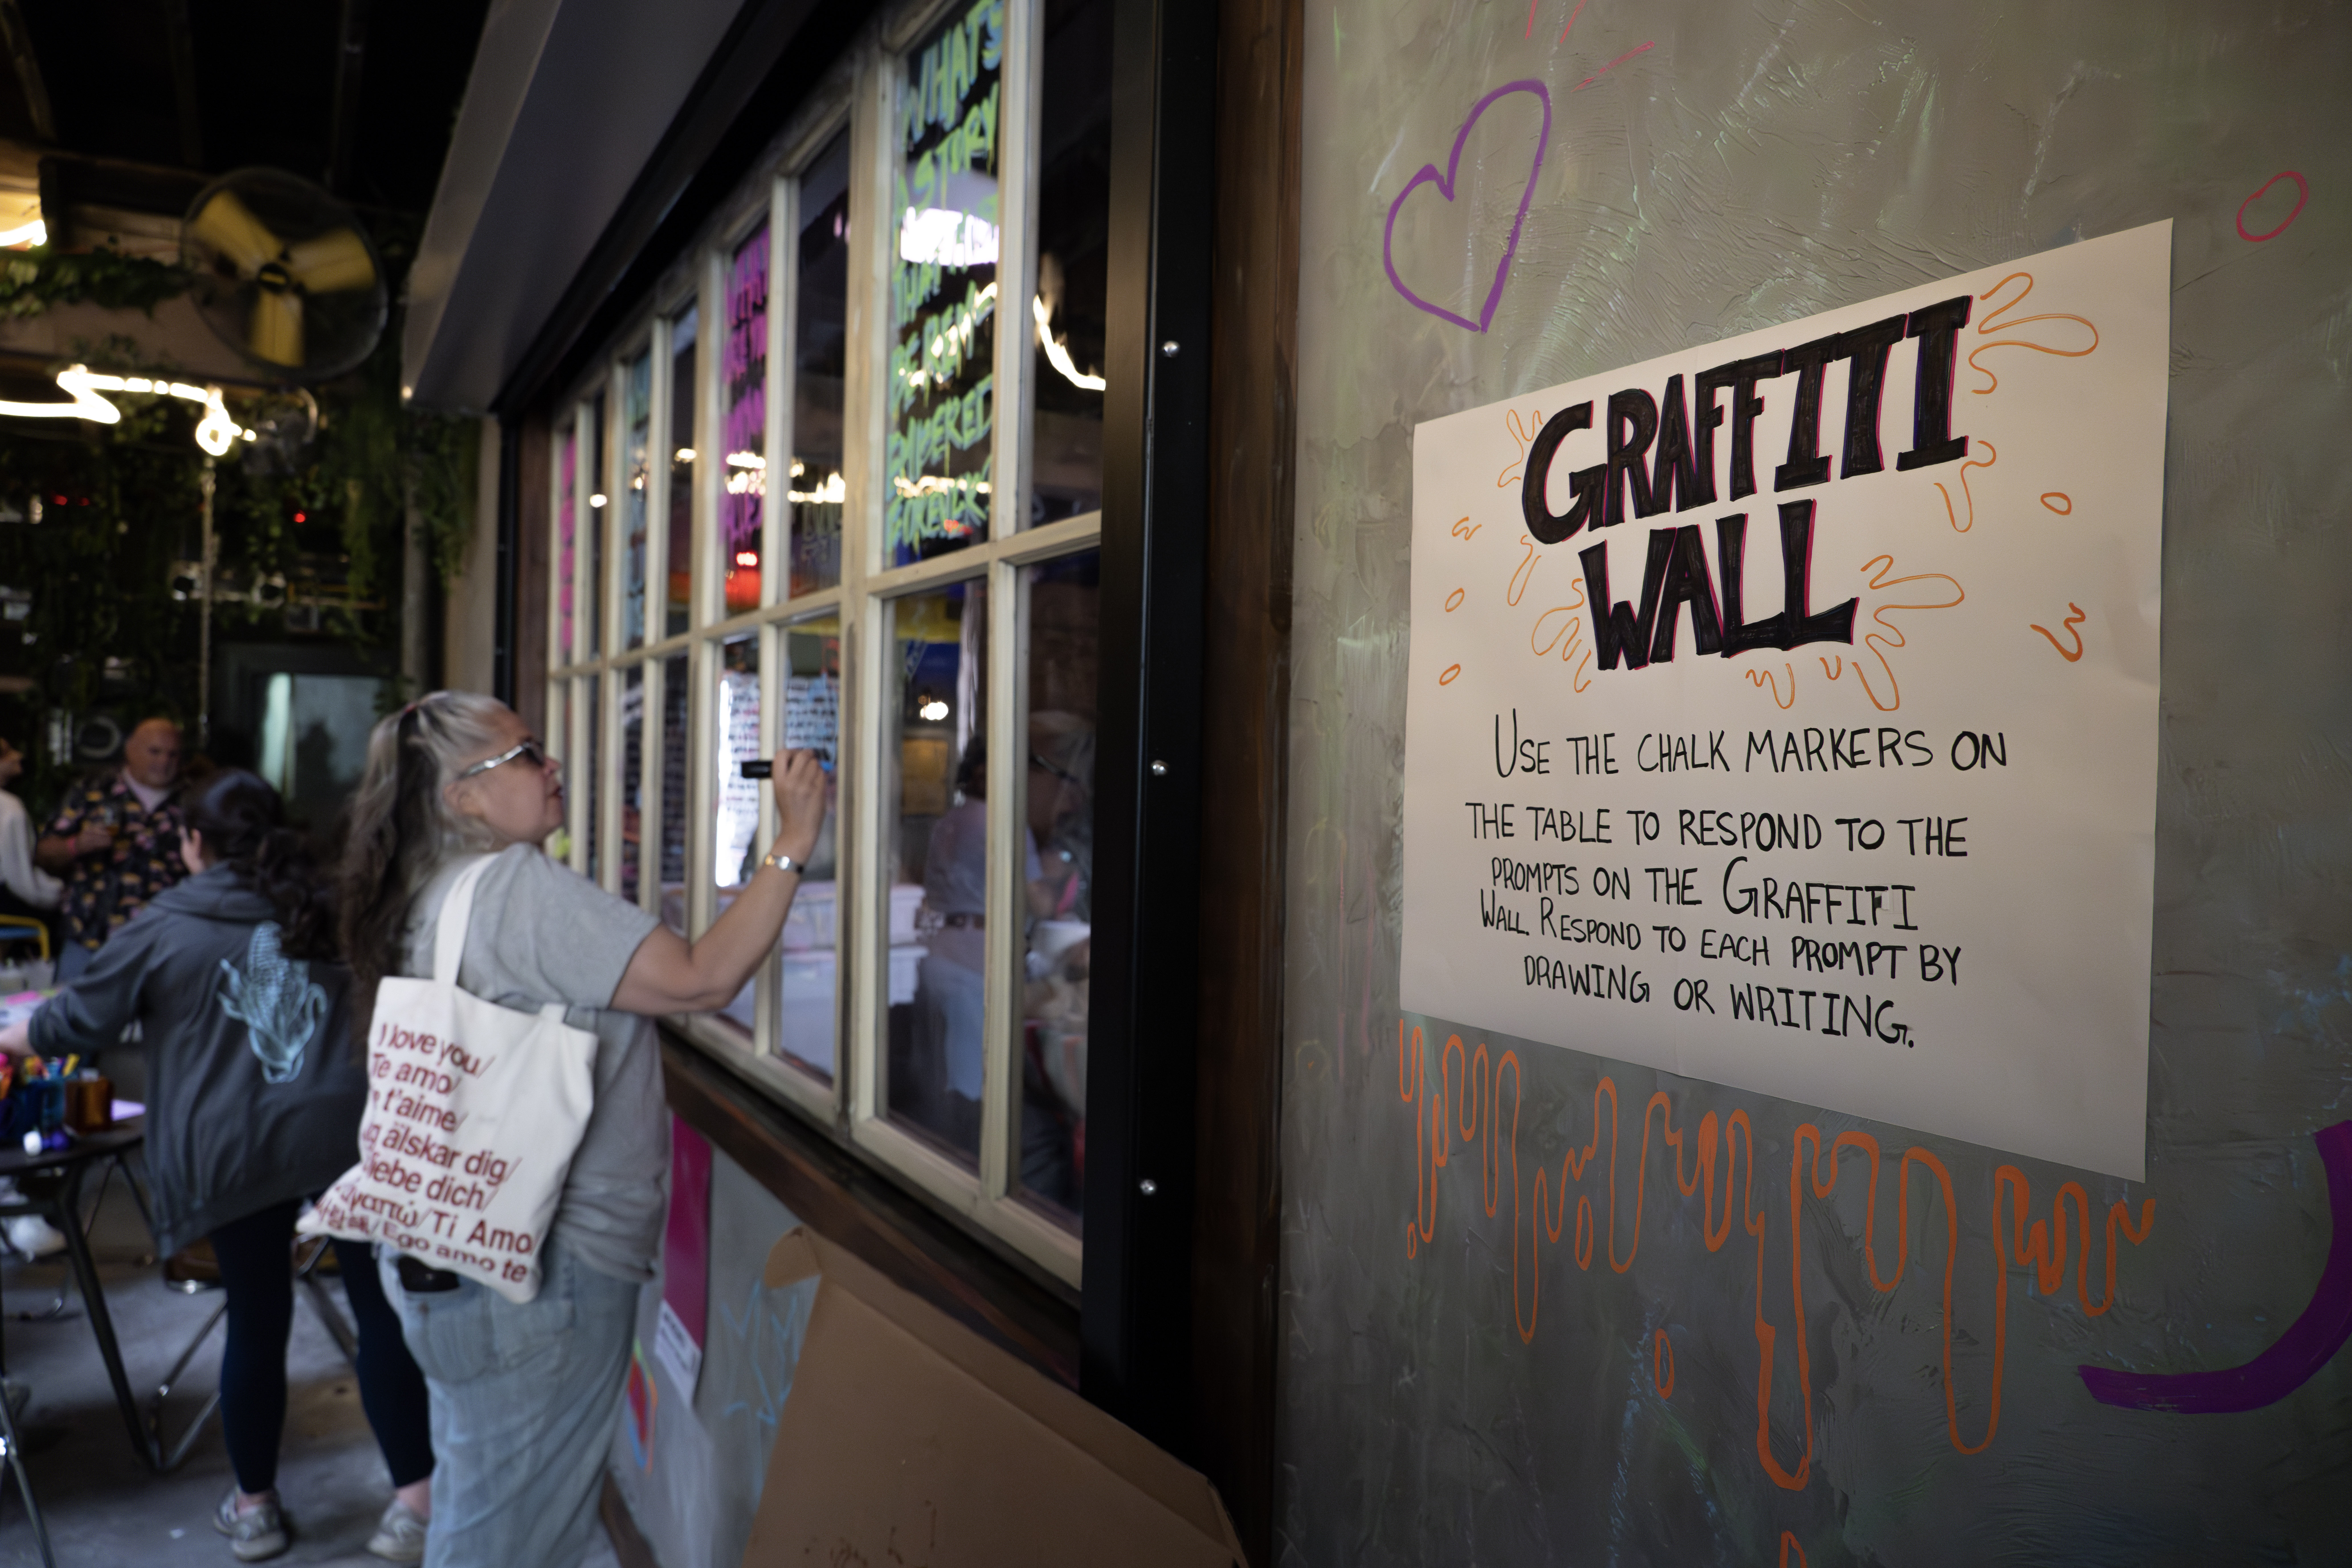 WHAT'S
A STORY
THAT
BE REM
EMBERED
GRAFFITI
WALL
USE THE CHALK MARKERS ON
THE TABLE TO RESPOND TO THE
PROMPTS ON THE GRAFFITI
WALL. RESPOND TO EACH PROMPT BY
DRAWING OR WRITING.
I love you/
Te amo/
t'aime/
älskar dig/
liebe dich/
Ti Amo
Ego amo te